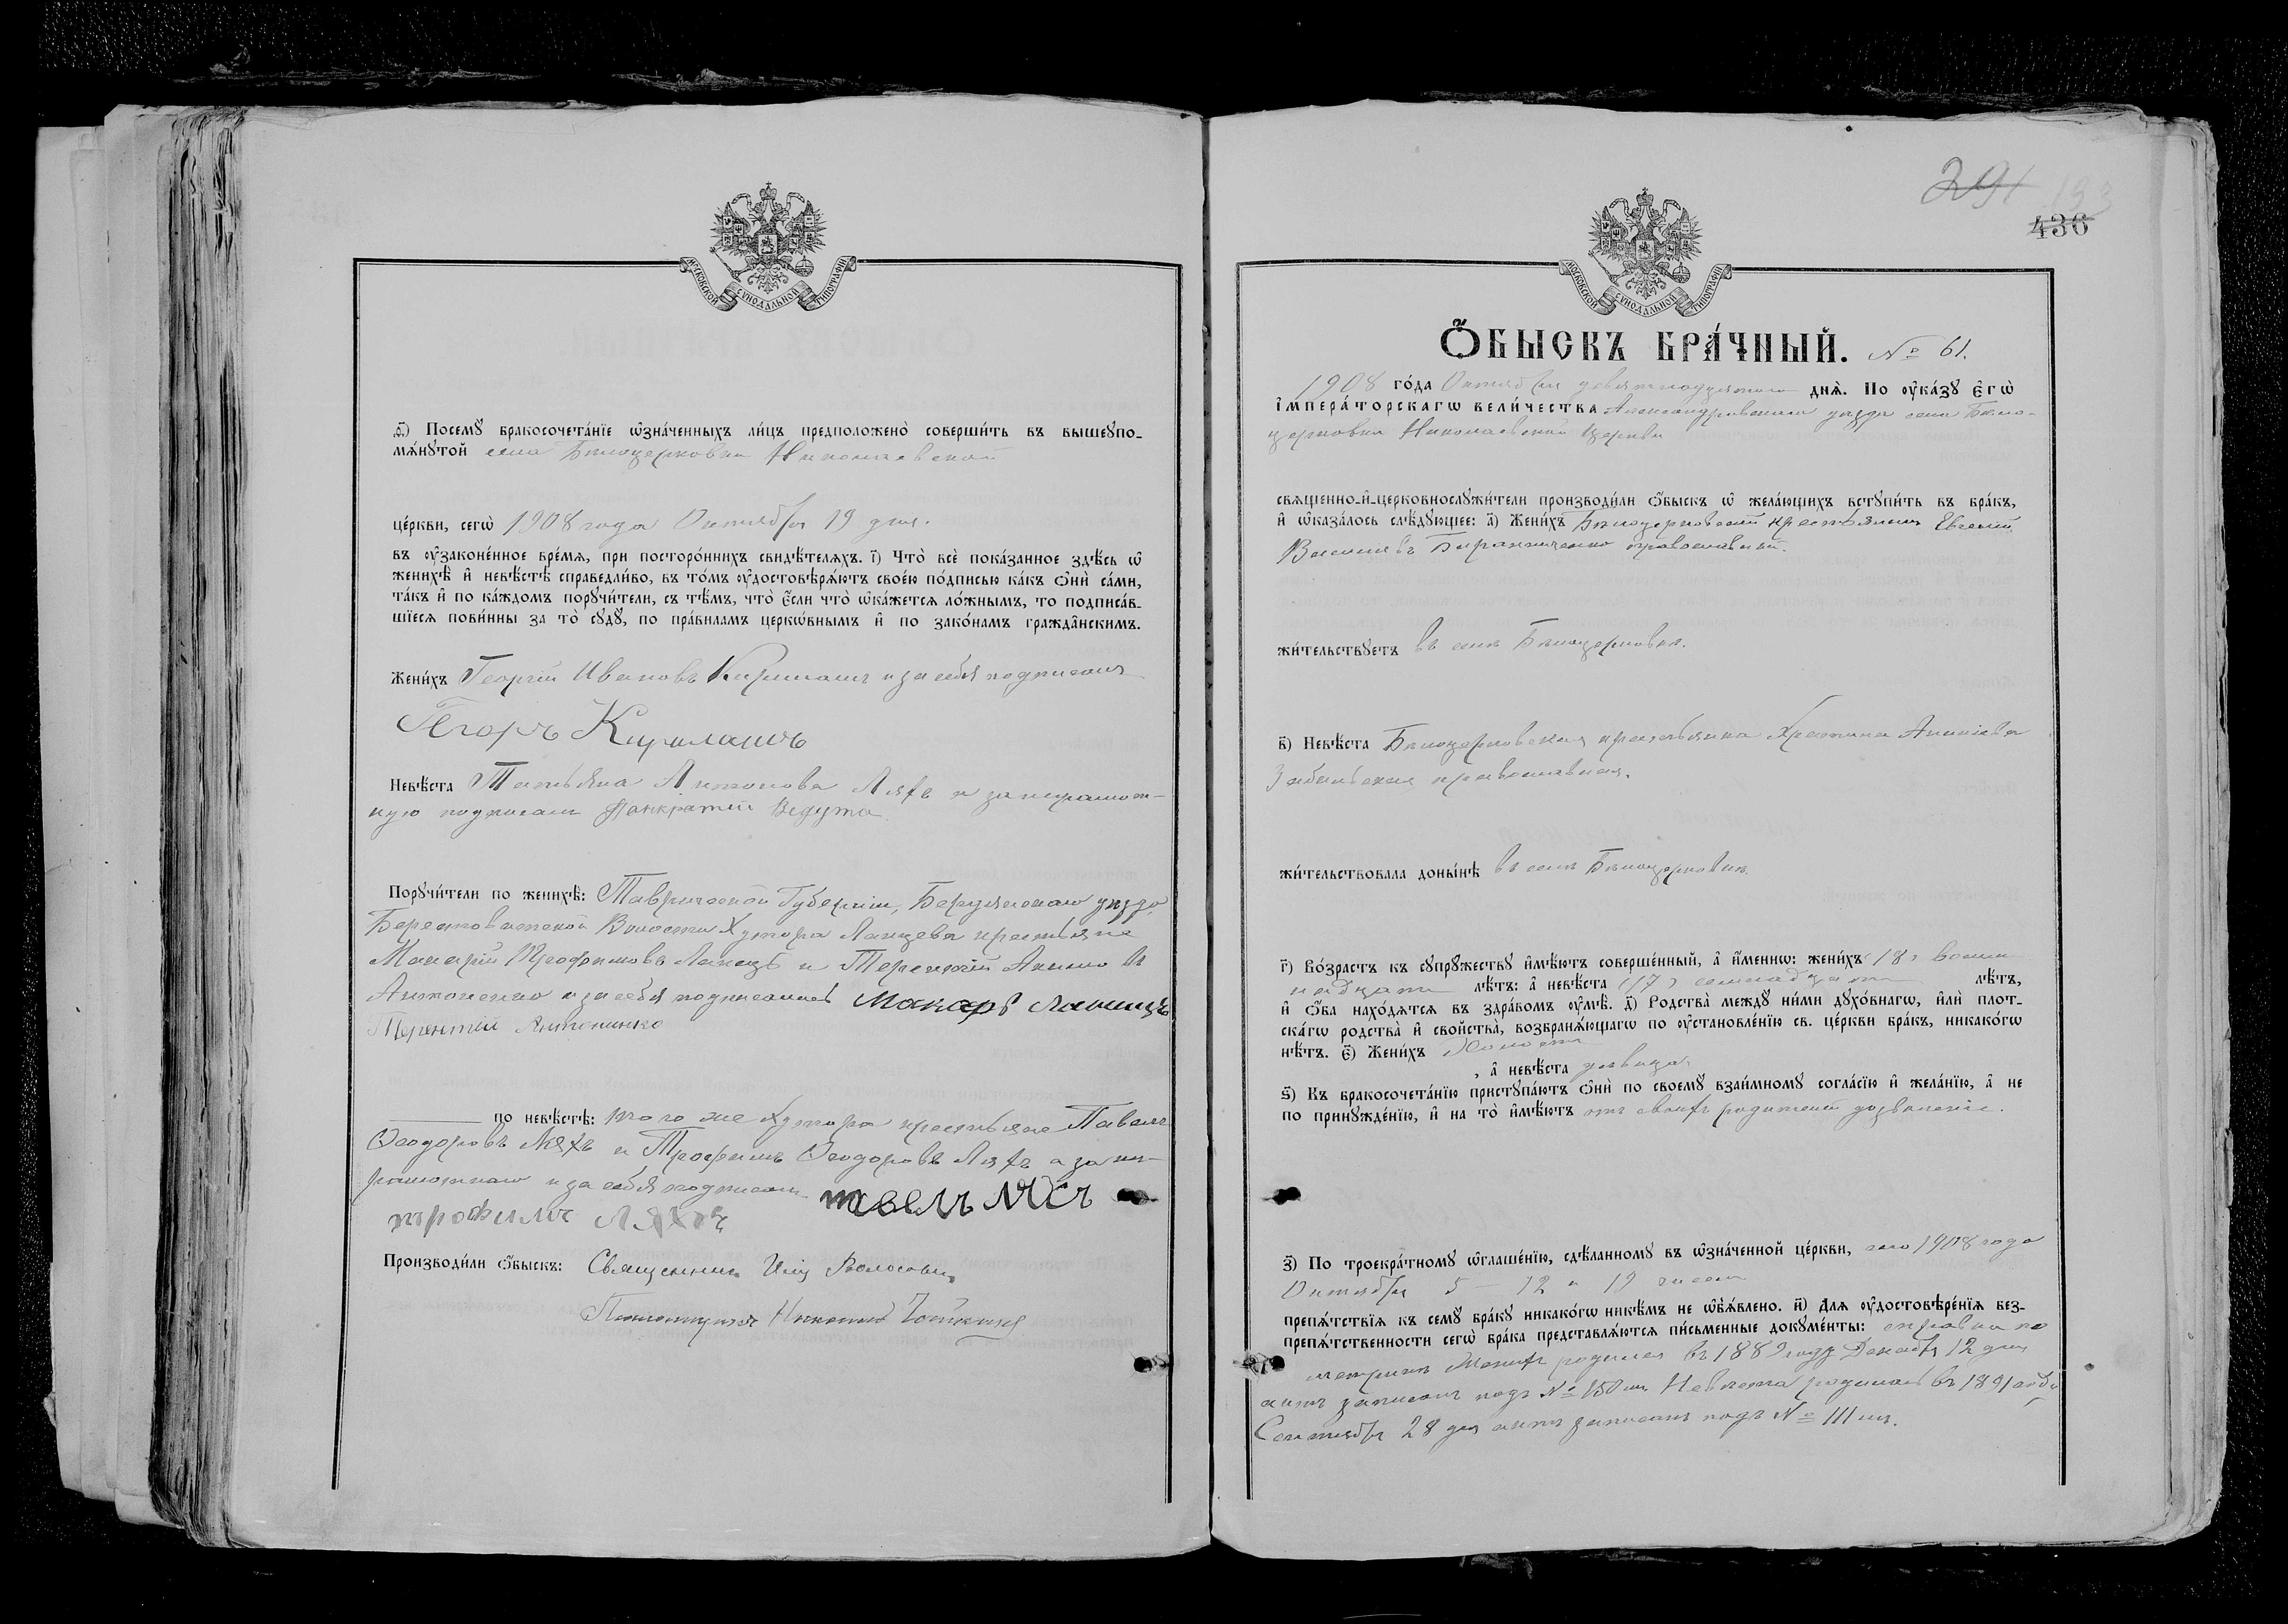 МОСКОВСКОЙ СѴНОДАЛЬНОЙ ТИПОГРАФІИ
ѳ҃) Посемꙋ бракосочета́нїе ѡ҆зна́ченныхъ ли́цъ предположено̀ соверши́ть въ вышеꙋпо-
мѧ́нꙋтой села Бѣлоцерковки Николаевской
це́ркви, сегѡ̀ 1908 года Октября 19 дня.
въ ᲂу҆зако́ненное вре́мѧ, при посторо́ннихъ свидѣ́телѧхъ. і҃) Что̀ всѐ пока́занное здѣ́сь ѡ҆
женихѣ̀ и҆ невѣ́стѣ справедли́во, въ то́мъ ᲂу҆достовѣрѧ́ютъ свое́ю по́дписью ка́къ ѻ҆нѝ са́ми,
та́къ и҆ по ка́ждомъ порꙋчи́тели, съ тѣ́мъ, что̀ є҆́сли что̀ ѡ҆ка́жетсѧ ло́жнымъ, то подписа́в-
шїесѧ пови́нны за то̀ сꙋдꙋ̀, по пра́виламъ церкѡ́внымъ и҆ по зако́намъ гражда̑нскимъ.
Жени́хъ Георгій Ивановъ Кирилашъ и за себя подписался
Ягоръ Кирилашъ
Невѣ́ста Татьяна Антонова Ляхъ и за неграмот-
ную подписалъ Панкратій Ведута
Порꙋчи́тели по женихѣ̀: Таврической Губерніи, Бердянскаго уѣзда,
Берестоватской Волости Хутора Ланцева крестьяне
Макарій Трофимовъ Ланецъ и Терентій Акимовъ
Антоненко и за себя подписались Макаръ Ланецъ
Терентій Антоненко
по невѣ́стѣ: того же Хутора крестьяне Павелъ
Ѳеодоровъ Ляхъ и Трофимъ Ѳеодоровъ Ляхъ а за не-
грамотнаго и за себя подписалъ
трофимъ ляхъ
Производи́ли ѻ҆́быскъ: Священникъ Илія
Псаломщикъ Николай
291
133
436
МОСКОВСКОЙ СѴНОДАЛЬНОЙ ТИПОГРАФІИ
Ѻ҆́БЫСКЪ БРА́ЧНЫЙ. № 61.
1908 го́да Октября девятнадцатаго днѧ̀. По ᲂу҆ка́зꙋ Є҆гѡ̀
І҆мпера́торскагѡ вели́чества Александровскаго уѣзда села Бѣло-
церковки Николаевской церкви
свѧщенно-и҆-церковнослꙋжи́тели производи́ли ѻ҆́быскъ ѡ҆ жела́ющихъ встꙋпи́ть въ бра́къ,
и҆ ѡ҆каза́лось слѣ́дꙋющее: а҃) Жени́хъ Бѣлоцерковскій крестьянинъ Евгеній
Васильевъ Бираниченко православный.
жи́тельствꙋетъ въ селѣ Бѣлоцерковкѣ.
в҃) Невѣ́ста Бѣлоцерковская крестьянка Христина Ананіева
Забѣльская православная.
жи́тельствовала доны́нѣ въ селѣ Бѣлоцерковкѣ.
г҃) Во́зрастъ къ сꙋпрꙋ́жествꙋ и҆мѣ́ютъ соверше́нный, а҆ и҆́меннѡ: жени́хъ (18) восем
надцати лѣ́тъ: а҆ невѣ́ста (17) семнадцати лѣ́тъ,
и҆ ѻ҆́ба нахо́дѧтсѧ въ здра́вомъ ᲂу҆мѣ̀. д҃) Родства̀ междꙋ̀ ни́ми дꙋхо́внагѡ, и҆лѝ плот-
ска́гѡ родства̀ и҆ сво́йства̀, возбранѧ́ющагѡ по ᲂу҆становле́нїю св. це́ркви бра́къ, никако́гѡ
нѣ́тъ. є҃) Жени́хъ Холостъ
, а҆ невѣ́ста дѣвица
ѕ҃) Къ бракосочета́нїю пристꙋпа́ютъ ѻ҆нѝ по своемꙋ̀ взаи́мномꙋ согла́сїю и҆ жела́нїю, а҆ не
по принꙋжде́нїю, и҆ на то̀ и҆мѣ́ютъ отъ своихъ родителей дозволеніе.
з҃) По троекра́тномꙋ ѡ҆глаше́нїю, сдѣ́ланномꙋ въ ѡ҆зна́ченной це́ркви, сего 1908 года
Октября 5 – 12 и 19 чиселъ
препѧ́тствїѧ къ семꙋ̀ бра́кꙋ никако́гѡ никѣ́мъ не ѡ҆б̾ѧ́влено. и҃) Длѧ ᲂу҆достовѣре́нїѧ без-
препѧ́тственности сегѡ̀ бра́ка представлѧ́ютсѧ пи́сьменные докꙋме́нты: справка по
метрикѣ Женихъ родился въ 1889 году Декабря 12 дня
актъ записанъ подъ № 150 мъ Невѣста родилась въ 1891 году
Сентября 28 дня актъ записанъ подъ № 111 мъ.